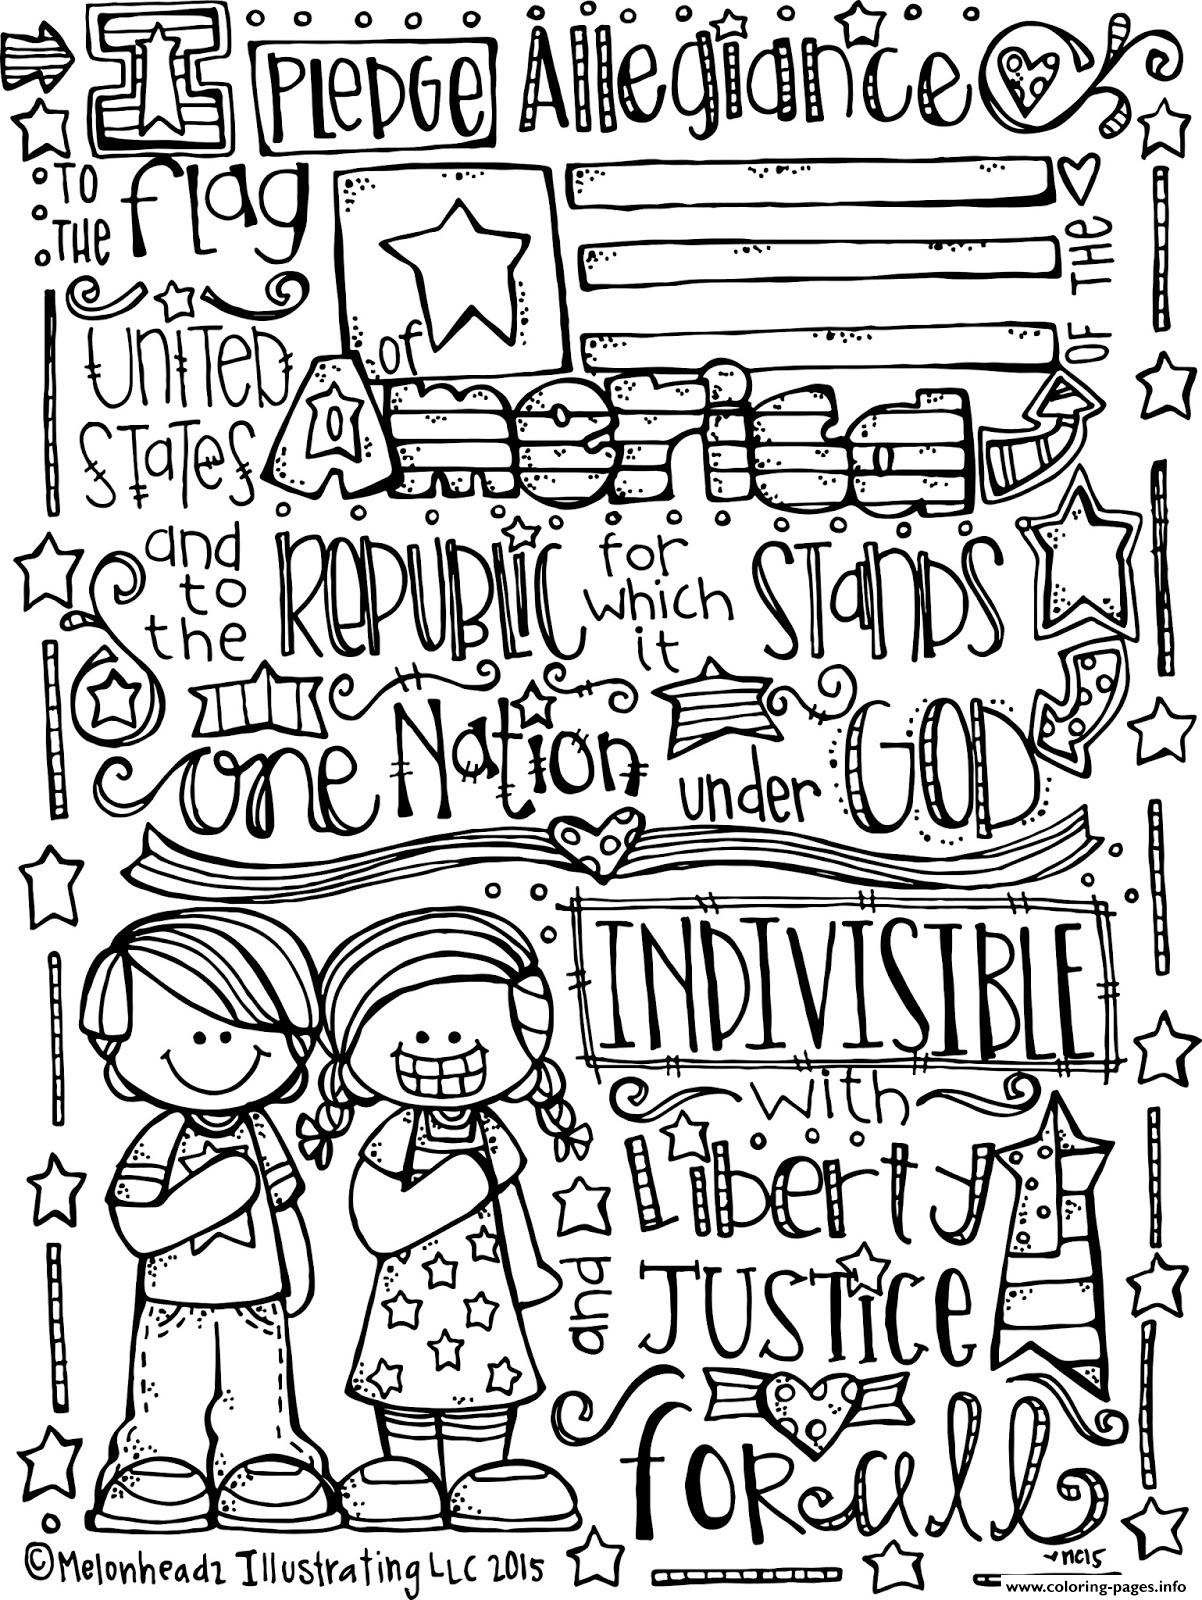 I PLEDGE Allegiance
TO THE flag
OF THE
UNITED
STATES
of America
and to the REPUBLIC for which it STANDS
one Nation under GOD
INDIVISIBLE
with
Liberty
and JUSTICE
for all
©Melonheadz Illustrating LLC 2015
MC15
www.coloring-pages.info